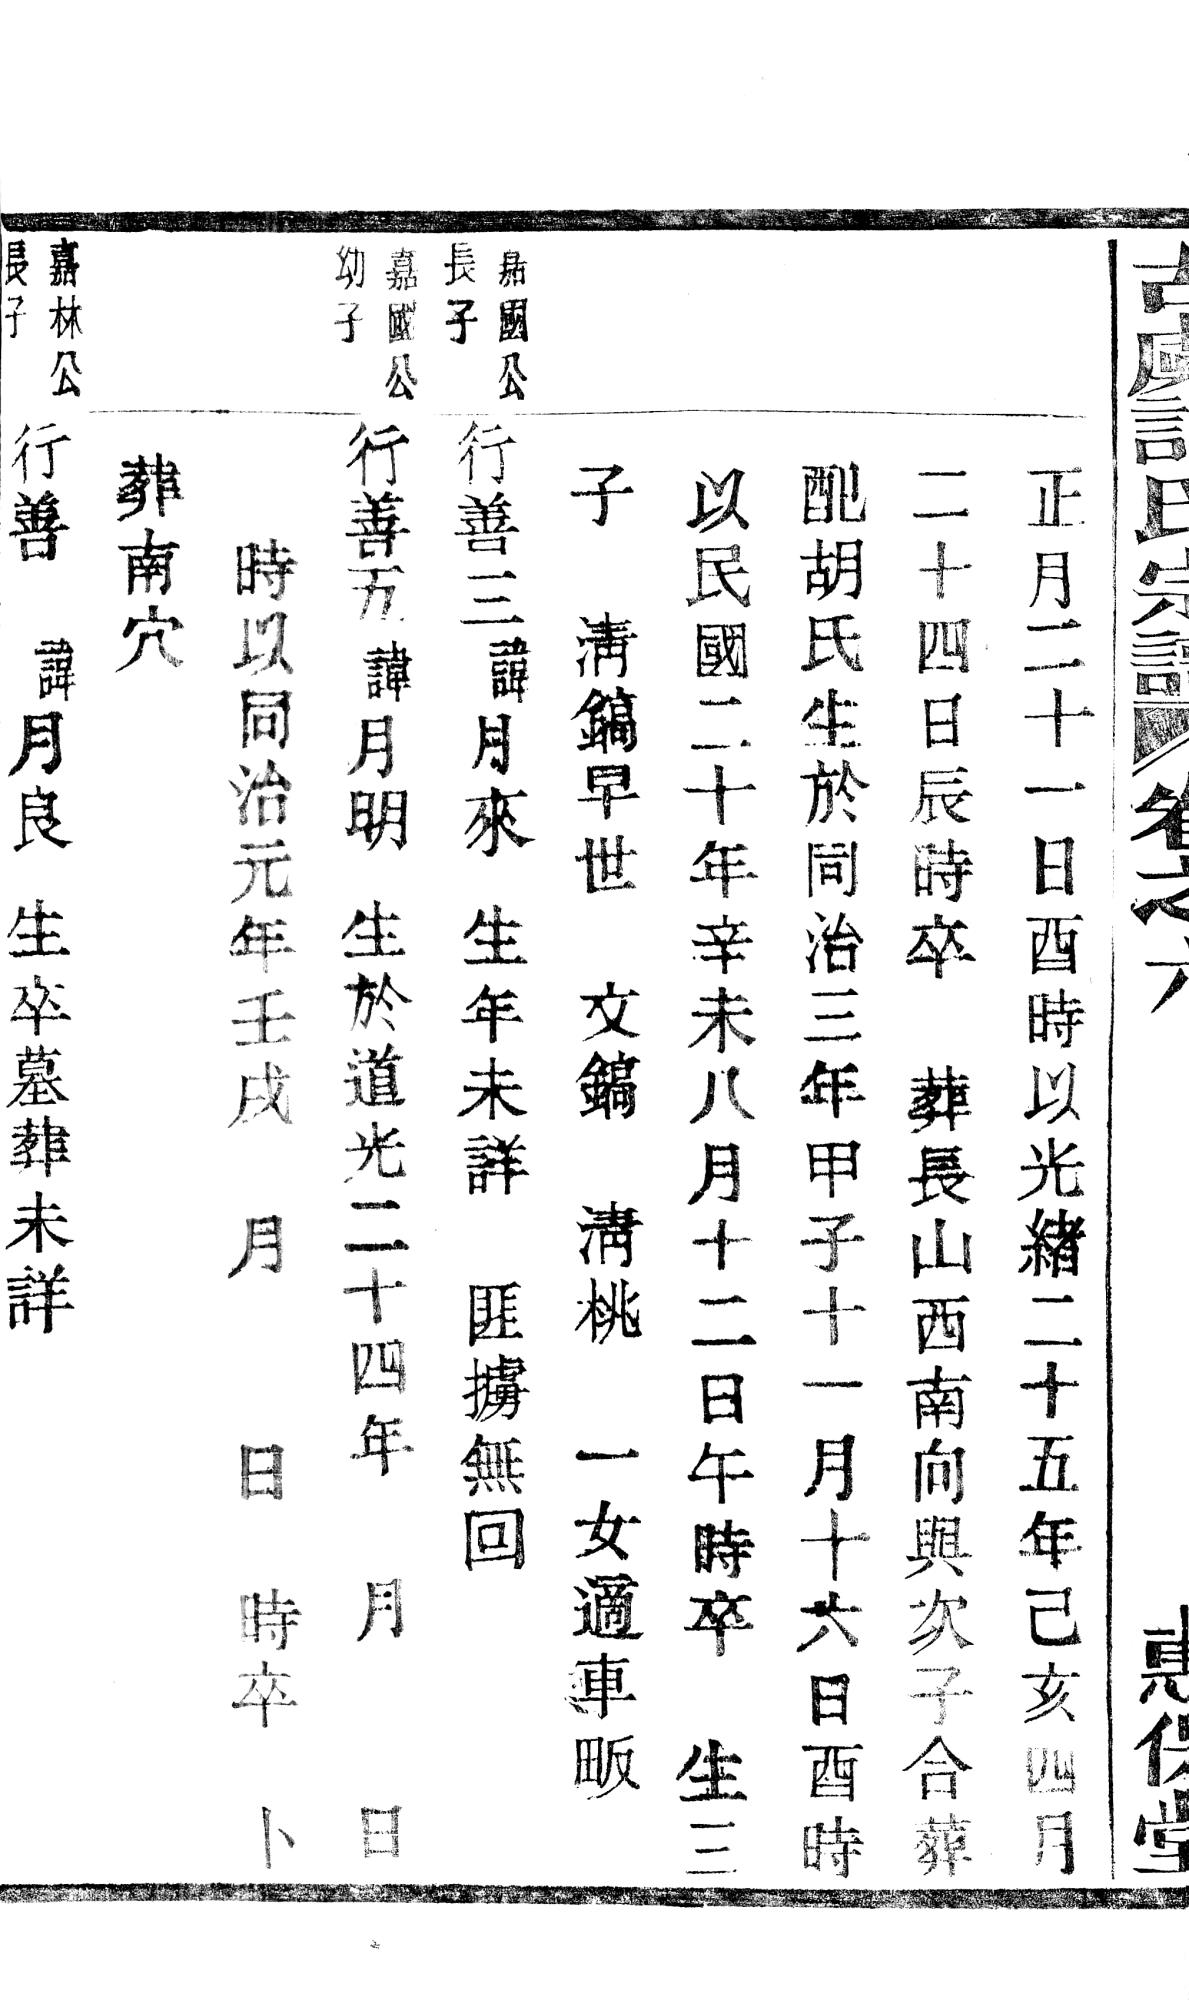 古虞許氏宗譜 卷之六 惠保堂
正月二十一日酉時以光緒二十五年己亥四月
二十四日辰時卒 葬長山西南向與次子合葬
配胡氏生於同治三年甲子十一月十六日酉時
以民國二十年辛未八月十二日午時卒 生三
子 淸鎬早世 文鎬 淸桃 一女適車畈
嘉國公
長子
行善三諱月來 生年未詳 匪擄無回
嘉國公
幼子
行善五諱月明 生於道光二十四年 月 日
時以同治元年壬戌 月 日 時卒 卜
葬南穴
嘉林公
長子
行善 諱月良 生卒墓葬未詳